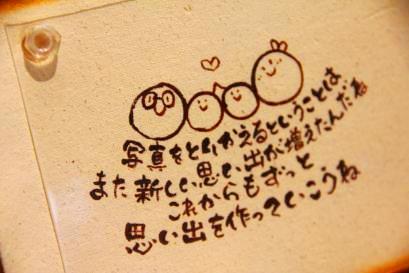 写真をとりかえるということは
また新しい思い出が増えたんだね
これからもずっと
思い出を作っていこうね